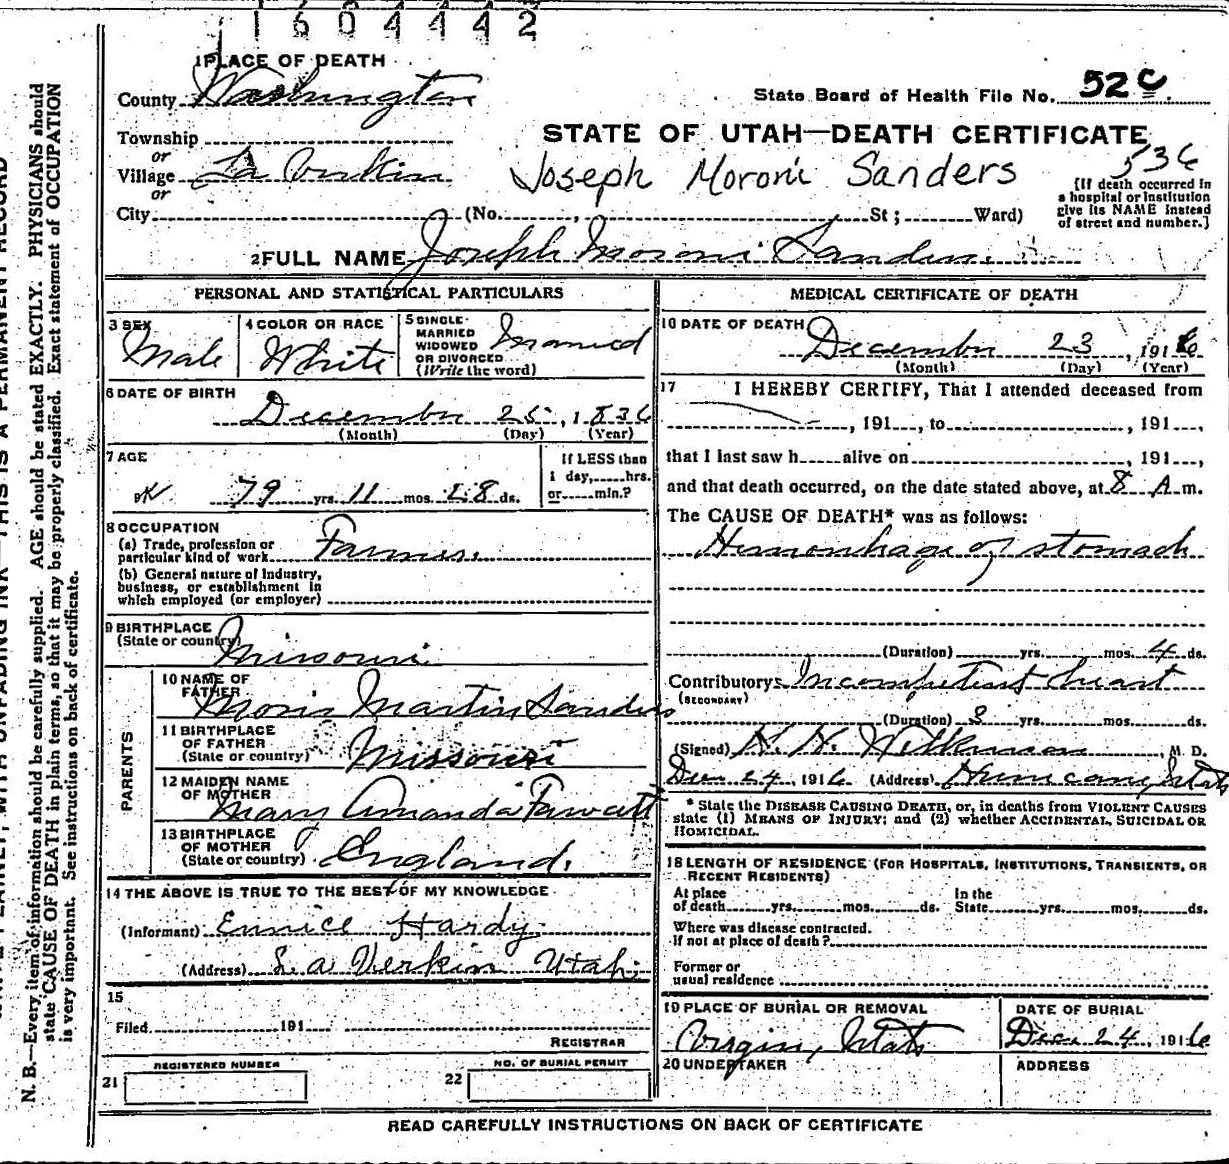 1604442
1 PLACE OF DEATH
County Washington
State Board of Health File No. 52 C
Township
or
Village La Verkin
or
STATE OF UTAH—DEATH CERTIFICATE
Joseph Moroni Sanders 536
[If death occurred in
a hospital or institution
give its NAME instead
of street and number.]
City (No. , St; Ward)
2 FULL NAME Joseph Moroni Sanders.
PERSONAL AND STATISTICAL PARTICULARS
3 SEX
Male
4 COLOR OR RACE
White
5 SINGLE
MARRIED
WIDOWED
OR DIVORCED
(Write the word)
Married
6 DATE OF BIRTH
December 25, 1836
(Month) (Day) (Year)
7 AGE
OK 79 yrs. 11 mos. 28 ds.
If LESS than
1 day, hrs.
or min.?
8 OCCUPATION
(a) Trade, profession or
particular kind of work Farmer.
(b) General nature of industry,
business, or establishment in
which employed (or employer)
9 BIRTHPLACE
(State or country)
Missouri
PARENTS
10 NAME OF
FATHER
Moris Martin Sanders
11 BIRTHPLACE
OF FATHER
(State or country) Missouri
12 MAIDEN NAME
OF MOTHER
Mary Amanda Fawcett
13 BIRTHPLACE
OF MOTHER
(State or country) England.
14 THE ABOVE IS TRUE TO THE BEST OF MY KNOWLEDGE
(Informant) Eunice Hardy
(Address) La Verkin Utah
15
Filed 191
REGISTRAR
21 REGISTERED NUMBER
22 NO. OF BURIAL PERMIT
MEDICAL CERTIFICATE OF DEATH
10 DATE OF DEATH
December 23, 1916
(Month) (Day) (Year)
17 I HEREBY CERTIFY, That I attended deceased from
, 191 , to , 191 ,
that I last saw h alive on , 191 ,
and that death occurred, on the date stated above, at 8 A m.
The CAUSE OF DEATH* was as follows:
Hemorrhage of stomach
(Duration) yrs. mos. 4 ds.
Contributory Incompetent heart
(SECONDARY)
(Duration) 3 yrs. mos. ds.
(Signed) Wilkinson M. D.
Dec 24, 1916 (Address) Hurricane, Utah
* State the DISEASE CAUSING DEATH, or, in deaths from VIOLENT CAUSES
state (1) MEANS OF INJURY; and (2) whether ACCIDENTAL, SUICIDAL OR
HOMICIDAL.
18 LENGTH OF RESIDENCE (FOR HOSPITALS, INSTITUTIONS, TRANSIENTS, OR
RECENT RESIDENTS)
At place
of death yrs. mos. ds.
In the
State yrs. mos. ds.
Where was disease contracted.
If not at place of death?
Former or
usual residence
19 PLACE OF BURIAL OR REMOVAL
Virgin, Utah
DATE OF BURIAL
Dec. 24, 1916
20 UNDERTAKER
ADDRESS
READ CAREFULLY INSTRUCTIONS ON BACK OF CERTIFICATE
WITH UNFADING INK—THIS IS A PERMANENT RECORD
N. B.—Every item of information should be carefully supplied. AGE should be stated EXACTLY. PHYSICIANS should
state CAUSE OF DEATH in plain terms, so that it may be properly classified. Exact statement of OCCUPATION
is very important. See instructions on back of certificate.